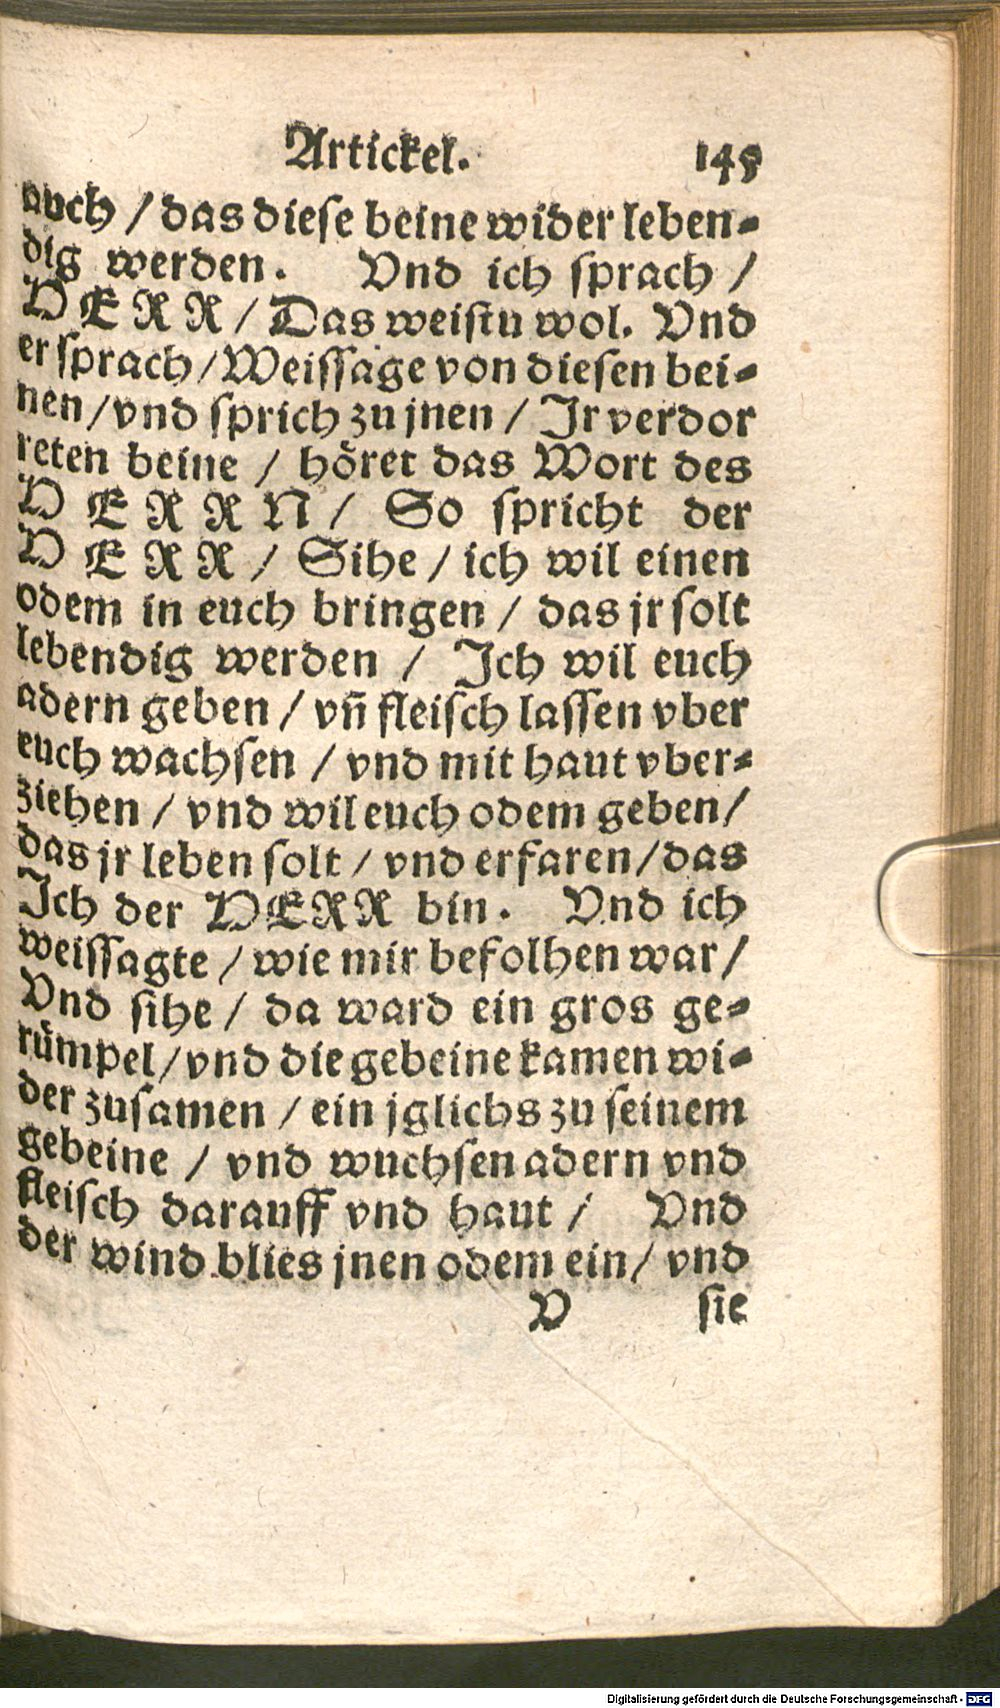 Artickel. 145
auch / das diese beine wider leben⸗
dig werden. Vnd ich sprach /
HERR / Das weistu wol. Vnd
er sprach / Weissage von diesen bei⸗
nen / vnd sprich zu jnen / Ir verdor
reten beine / höret das Wort des
HERRN / So spricht der
HERR / Sihe / ich wil einen
odem in euch bringen / das jr solt
lebendig werden / Ich wil euch
adern geben / vñ fleisch lassen vber
euch wachsen / vnd mit haut vber⸗
ziehen / vnd wil euch odem geben /
das jr leben solt / vnd erfaren / das
Ich der HERR bin. Vnd ich
weissagte / wie mir befolhen war /
Vnd sihe / da ward ein gros ge⸗
rümpel / vnd die gebeine kamen wi⸗
der zusamen / ein jglichs zu seinem
gebeine / vnd wuchsen adern vnd
fleisch darauff vnd haut / Vnd
der wind blies jnen odem ein / vnd
V sie
Digitalisierung gefördert durch die Deutsche Forschungsgemeinschaft - DFG